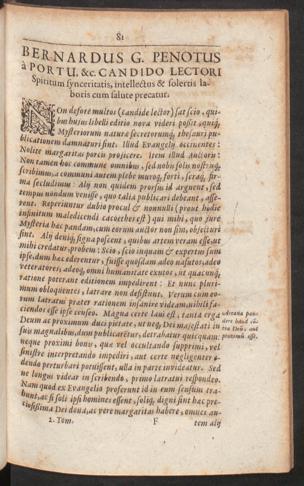 81
BERNARDUS G. PENOTUS
à PORTU, &c. CANDIDO LECTORI
Spiritum synceritatis, intellectus & solertis la-
boris cum salute precatur.
NOn defore multos (candide lector) sat scio, qui-
bus huius libelli editio nova videri possit
Mysteriorum naturæ secretorumq́; thesauri pu-
blicationem damnaturi sint. Illud Evangelij occinentes:
Nolite margaritas porcis projicere. Item illud Auctoris:
Non tamen hoc commune omnibus, sed nobis solis nostrisq́;
scribimus, à communi autem plebe murog, forti, seraq́; fir-
ma secludimus: Alij non quidem prorsus id arguent, sed
tempus nondum venisse, quo talia publicari debeant, asse-
rent. Reperientur dubio procul & nonnulli (prout hodie
infinitum maledicendi cacoethes est) qui mihi, quo jure
Mysteria hæc pandam, cum eorum auctor non sim, objicturi
sint. Alij deniq́; signa poscent, quibus artem veram esse, ut
mihi credatur, probem: Scio, scio inquam & expertus sum
ipse, dum hæc ederentur, fuisse quosdam adeo nasutos, adeo
veteratores, adeoq́; omni humanitate exutos, ut quacunq́;
ratione poterant editionem impedirent: Et nunc pluri-
mum obloquentes, latrare non desistunt. Verum cum eo-
rum latratui prater rationem insanire videam, nihil fa-
ciendos esse ipse censeo. Magna certe laus est, tanta erga
Deum ac proximum duci pietate, ut neq́; Dei majestati in
suis magnalibus, dum publicarentur, detrahatur quicquam:
neque proximi bono, quæ vel occultando supprimi, vel
sinistre interpretando impediri, aut certe negligenter e-
dendo perturbari potuissent, ulla in parte invideatur. Sed
ne longus videar in scribendo, primo latratui respondeo.
Nam quod ex Evangelio proferunt id in eum sensum
ac si soli ipsi homines essent, soliq́; digni sint hæc pre-
ciosissima Dei dona, ac vere margaritas habere, omnes au-
2. Tom. F tem alij
Arcana pan-
dere
Deo, aut
proximis esse.